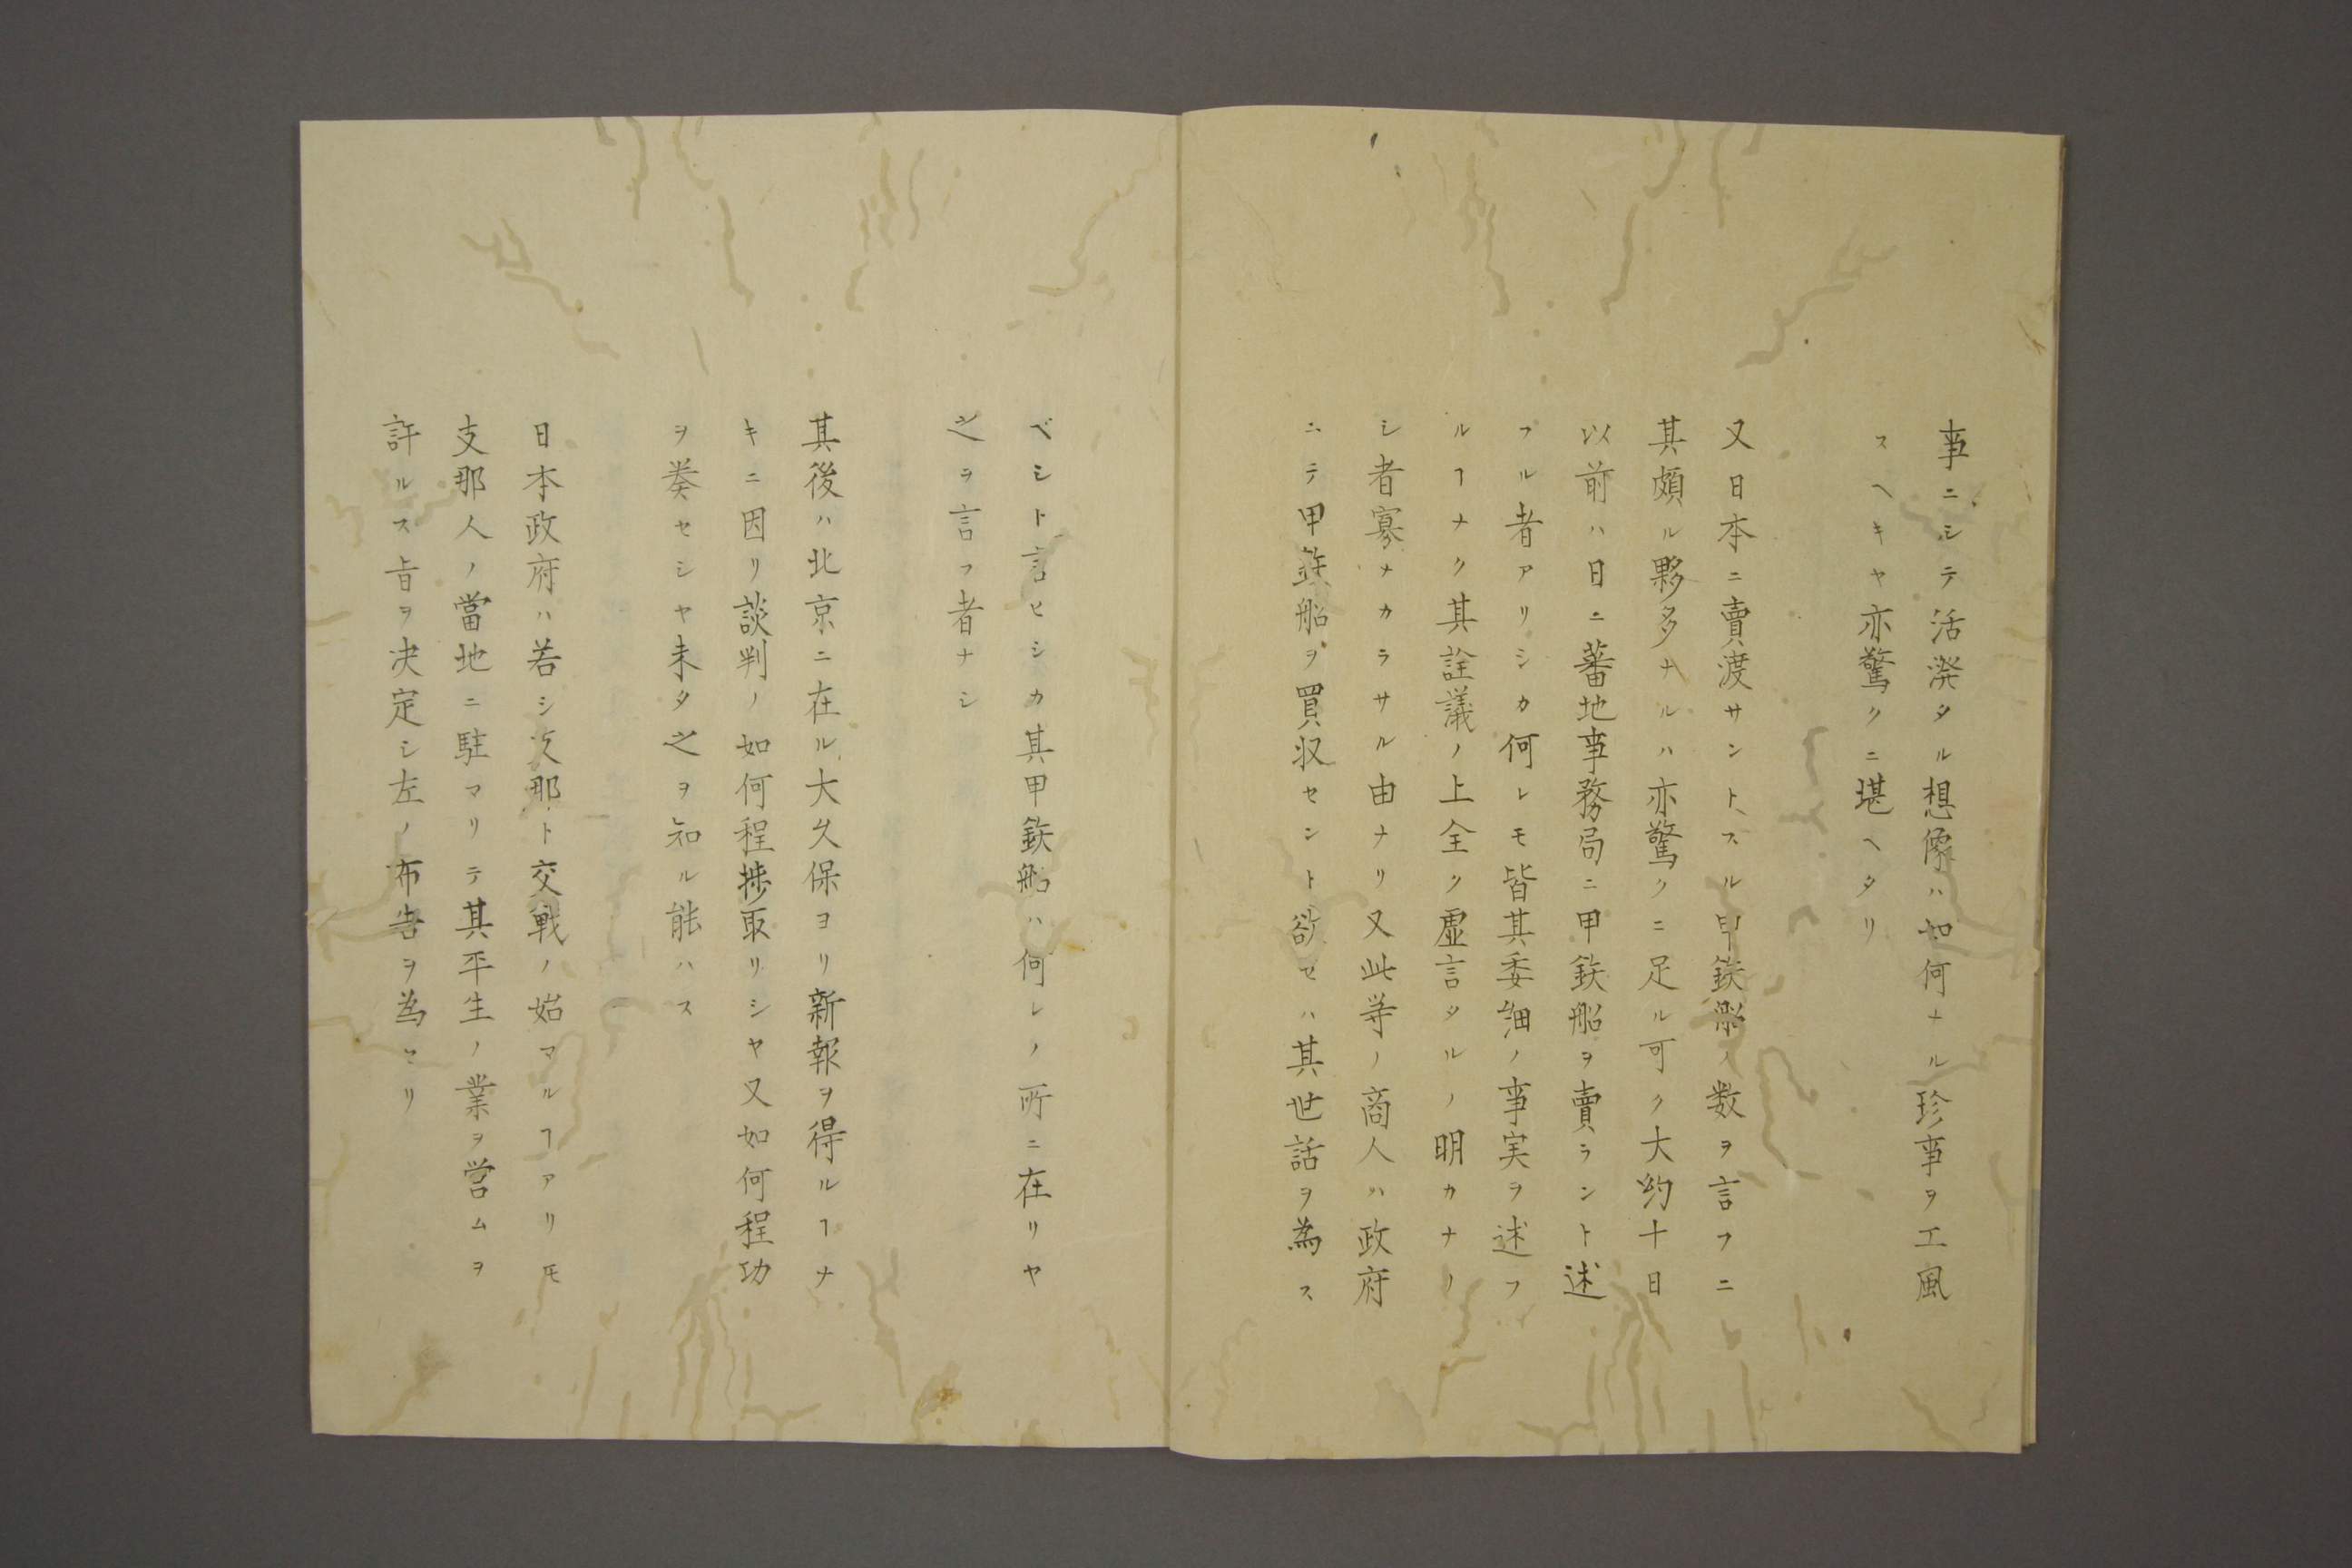 事ニシテ活溌タル想像ハ如何ナル珍事ヲ工風
スヘキヤ亦驚クニ堪ヘタリ
又日本ニ賣渡サントスル甲鉄舩ノ数ヲ言フニ
其頗ル夥多ナルハ亦驚クニ足ル可ク大約十日
以前ハ日ニ蕃地事務局ニ甲鉄船ヲ賣ラント述
フル者アリシカ何レモ皆其委細ノ事実ヲ述フ
ルヿナク其詮議ノ上全ク虚言タルノ明カナリ
シ者寡ナカラサル由ナリ又此等ノ商人ハ政府
ニテ甲鉄船ヲ買収セント欲セハ其世話ヲ為ス
ベシト言ヒシカ其甲鉄船ハ何レノ所ニ在リヤ
之ヲ言フ者ナシ
其後ハ北京ニ在ル大久保ヨリ新報ヲ得ルヿナ
キニ因リ談判ノ如何程捗取リシヤ又如何程功
ヲ奏セシヤ未タ之ヲ知ル能ハス
日本政府ハ若シ支那ト交戦ノ始マルヿアリモ
支那人ノ當地ニ駐マリテ其平生ノ業ヲ営ムヲ
許ルス旨ヲ决定シ左ノ布告ヲ為セリ